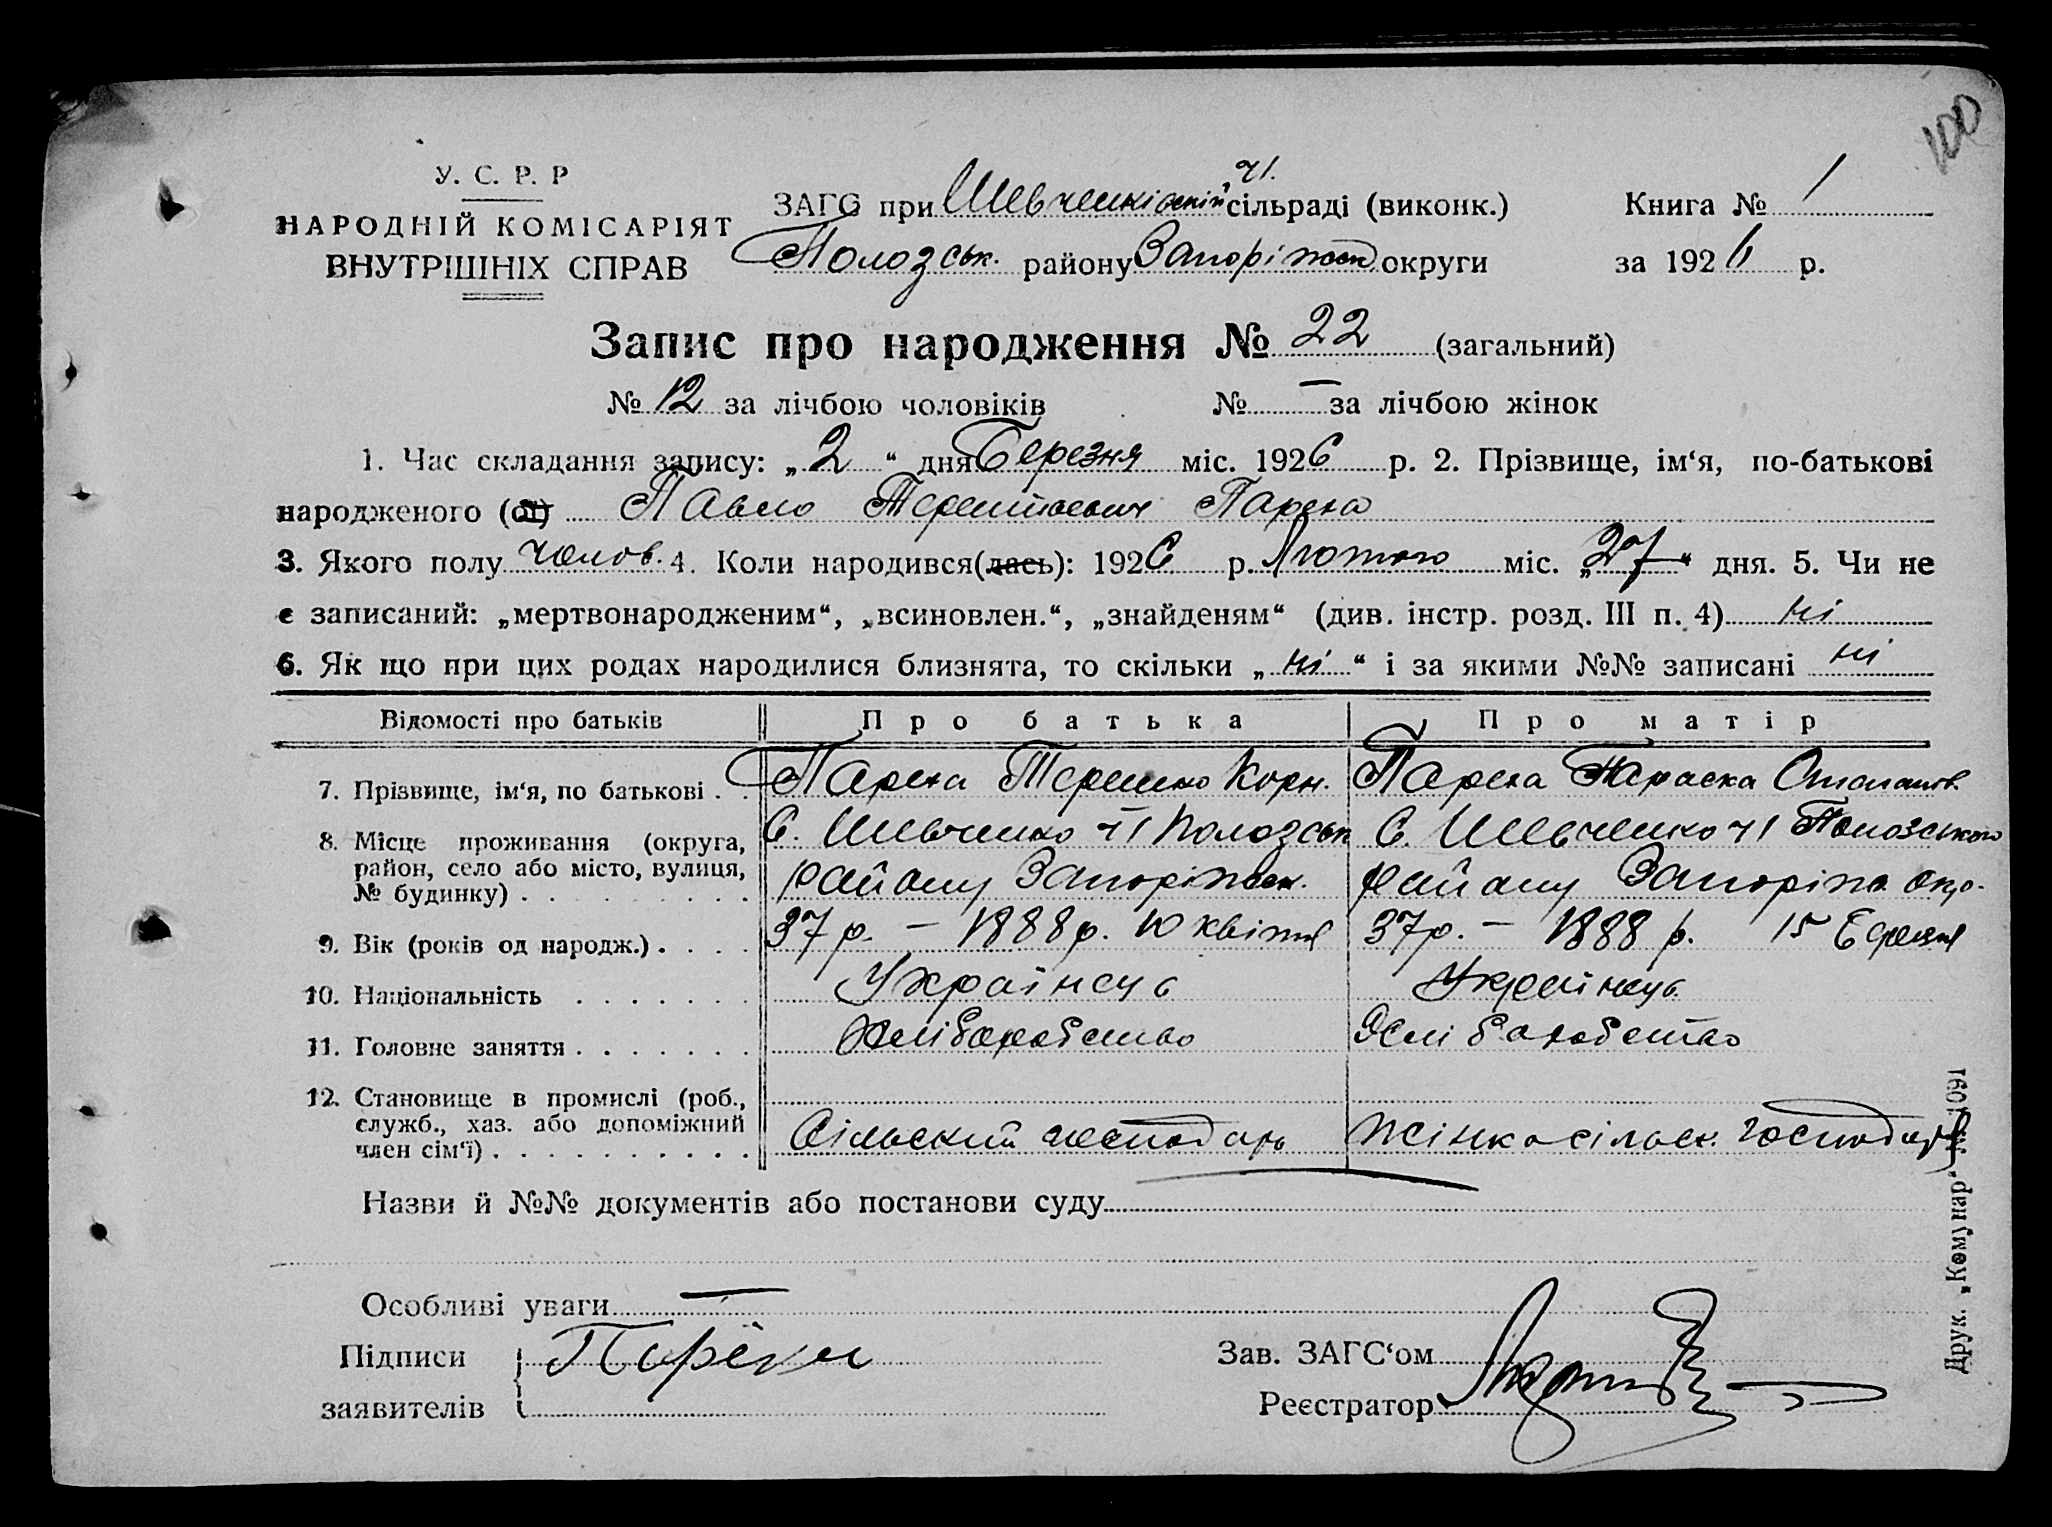 100
У. С. Р. Р
НАРОДНІЙ КОМІСАРІЯТ
ВНУТРІШНІХ СПРАВ
ЗАГС при Шевченківській ч1. сільраді (виконк.)
Полозськ. району Запоріжськ округи
Книга № 1
за 1926 р.
Запис про народження № 22 (загальний)
№ 12 за лічбою чоловіків № — за лічбою жінок
1. Час складання запису: „2“ дня Березня міс. 1926 р. 2. Прізвище, ім‘я, по-батькові
народженого (ої) Павло Терентьевич
3. Якого полу челов. 4. Коли народився(лась): 1926 р. Лютого міс. „27“ дня. 5. Чи не
є записаний: „мертвонародженим“, „всиновлен.“, „знайденям“ (див. інстр. розд. III п. 4) ні
6. Як що при цих родах народилися близнята, то скільки „ні“ і за якими №№ записані ні
Відомості про батьків Про батька Про матір
7. Прізвище, ім‘я, по батькові . . Терешко Корн. Параска
8. Місце проживання (округа, район, село або місто, вулиця, № будинку) . . . . . . . . .
С. Шевченко ч1 Полозськ
району Запоріжськ.
С. Шевченко ч1 Полозського
району Запоріж. окр.
9. Вік (років од народж.) . . . . 37 р. — 1888 р. 10 квітня 37 р. — 1888 р. 15 Березня
10. Національність . . . . . . . Українець Українець
11. Головне заняття . . . . . . . Хліборобство Хліборобство
12. Становище в промислі (роб., служб., хаз. або допоміжний член сім‘ї) . . . . . . . . . .
Сільский господарь Жінка сільск. господаря
Назви й №№ документів або постанови суду
Особливі уваги —
Підписи
заявителів
Зав. ЗАГС‘ом
Реєстратор
Друк. „Комунар“ № 1091